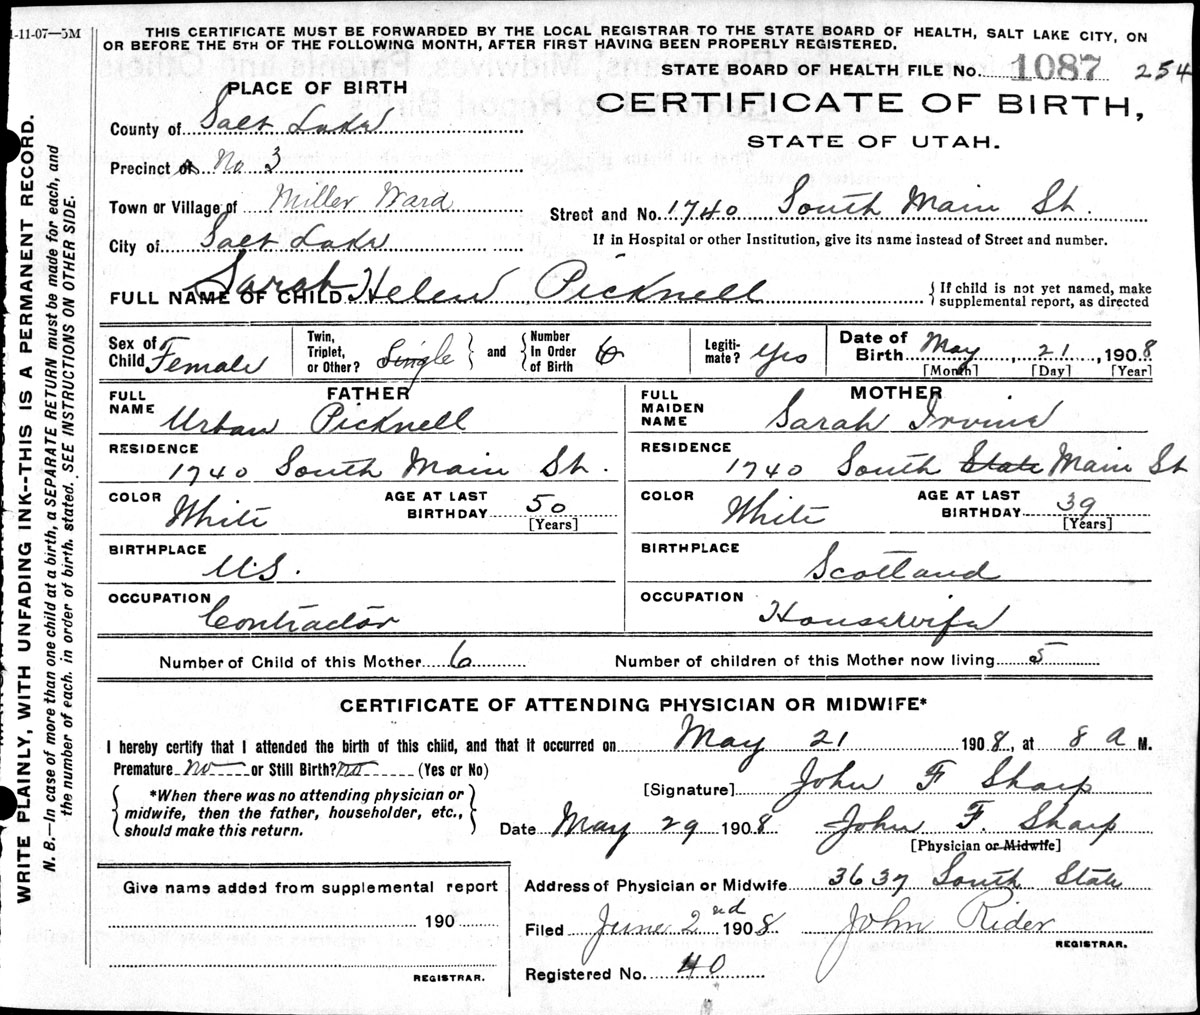 1-11-07—5M
THIS CERTIFICATE MUST BE FORWARDED BY THE LOCAL REGISTRAR TO THE STATE BOARD OF HEALTH, SALT LAKE CITY, ON
OR BEFORE THE 5TH OF THE FOLLOWING MONTH, AFTER FIRST HAVING BEEN PROPERLY REGISTERED.
STATE BOARD OF HEALTH FILE No. 1087 254
PLACE OF BIRTH
CERTIFICATE OF BIRTH,
STATE OF UTAH.
County of Salt Lake
Precinct of No 3
Town or Village of Miller Ward
Street and No. 1740 South Main St.
City of Salt Lake
If in Hospital or other Institution, give its name instead of Street and number.
FULL NAME OF CHILD Sarah Helen Picknell
{ If child is not yet named, make
supplemental report, as directed
Sex of Child Female
Twin, Triplet, or Other? Single } and { Number In Order of Birth 6
Legiti-mate? Yes
Date of Birth May, 21, 1908
[Month] [Day] [Year]
FATHER
FULL NAME Urban Picknell
RESIDENCE 1740 South Main St.
COLOR White AGE AT LAST BIRTHDAY 50 [Years]
BIRTHPLACE U.S.
OCCUPATION Contractor
MOTHER
FULL MAIDEN NAME Sarah Irvine
RESIDENCE 1740 South State Main St
COLOR White AGE AT LAST BIRTHDAY 39 [Years]
BIRTHPLACE Scotland
OCCUPATION Housewife
Number of Child of this Mother 6 Number of children of this Mother now living 5
CERTIFICATE OF ATTENDING PHYSICIAN OR MIDWIFE*
I hereby certify that I attended the birth of this child, and that it occurred on May 21 1908, at 8 A M.
Premature No or Still Birth? No (Yes or No)
[Signature] John F Sharp
{ *When there was no attending physician or
midwife, then the father, householder, etc.,
should make this return. }
Date May 29 1908 John F. Sharp
[Physician or Midwife]
Give name added from supplemental report
190
REGISTRAR.
Address of Physician or Midwife 3637 South State
Filed June 2nd 1908 John Rider
REGISTRAR.
Registered No. 40
WRITE PLAINLY, WITH UNFADING INK--THIS IS A PERMANENT RECORD.
N. B.—In case of more than one child at a birth, a SEPARATE RETURN must be made for each, and
the number of each, in order of birth, stated. SEE INSTRUCTIONS ON OTHER SIDE.